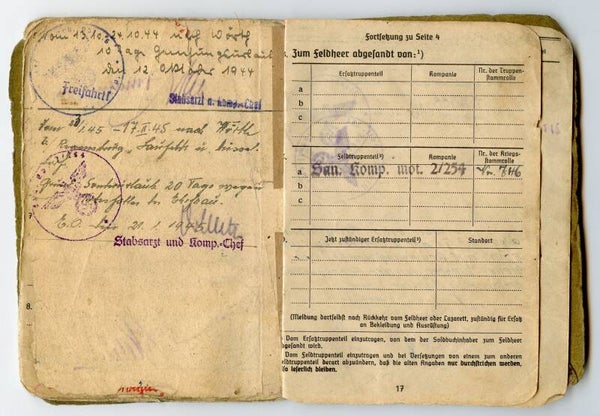 Vom 13.10.-24.10.44 nach Wörth
10 Tage Genesungsurlaub
den 12. Oktober 1944
Freifahrt
Stabsarzt u. Komp.-Chef
Vom 1.45 - 17.II.45 nach Wörth
Regensburg
Sonderurlaub 20 Tage wegen
E.O. den 21.1.1945
Stabsarzt und Komp.-Chef
8.
Fortsetzung zu Seite 4
Zum Feldheer abgesandt von:¹)
Ersatztruppenteil Kompanie Nr. der Truppen-stammrolle
a
b
c
Feldtruppenteil²) Kompanie Nr. der Kriegs-stammrolle
a San. Komp. mot. 2/254 Nr. 746
b
c
Jetzt zuständiger Ersatztruppenteil³) Standort
(Meldung dortselbst nach Rückkehr vom Feldheer oder Lazarett, zuständig für Ersatz
an Bekleidung und Ausrüstung)
Vom Ersatztruppenteil einzutragen, von dem der Soldbuchinhaber zum Feldheer
abgesandt wird.
Vom Feldtruppenteil einzutragen und bei Versetzungen von einem zum anderen
Feldtruppenteil derart abzuändern, daß die alten Angaben nur durchstrichen werden,
also leserlich bleiben.
17